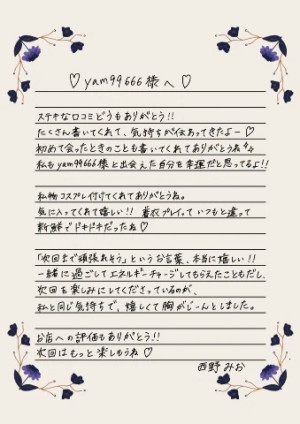 ♡ yam99666様へ ♡
ステキな口コミどうもありがとう!!
たくさん書いてくれて、気持ちが伝わってきたよー♡
初めて会ったときのことも書いてくれてありがとうね
私もyam99666様と出会えた自分を幸運だと思ってるよ!!
私物コスプレ付けてくれてありがとうね。
気に入ってくれて嬉しい!! 着衣プレイって いつもと違って
新鮮でドキドキだったね♡
「次回まで頑張れそう」というお言葉、本当に嬉しい!!
一緒に過ごしてエネルギーチャージしてもらえたこともだし、
次回を楽しみにしてくださっているのが、
私と同じ気持ちで、嬉しくて胸がじーんとしました。
お店への評価もありがとう!!
次回はもっと楽しもうね♡
西野 みお